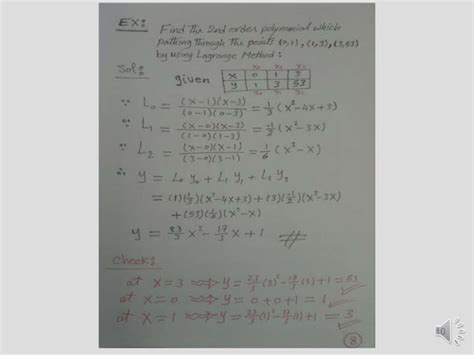 EX:
Find the 2nd order polynomial which
pathing through the points (0,1), (1,3), (3,53)
by using Lagrange Method:
Sol:
given
x₀ x₁ x₂
X 0 1 3
Y 1 3 53
y₀ y₁ y₂
∵ L₀ = (x-1)(x-3)/(0-1)(0-3) = 1/3 (x²-4x+3)
∵ L₁ = (x-0)(x-3)/(1-0)(1-3) = -1/2 (x²-3x)
∵ L₂ = (x-0)(x-1)/(3-0)(3-1) = 1/6 (x²-x)
∴ y = L₀ y₀ + L₁ y₁ + L₂ y₂
= (1)(1/3)(x²-4x+3) + (3)(-1/2)(x²-3x)
+ (53)(1/6)(x²-x)
x² - 17/3 x + 1
Check:
at x = 3 ⟹ y = 23/3 (3)² - 17/3 (3) + 1 = 53
at x = 0 ⟹ y = 0 + 0 + 1 = 1
at x = 1 ⟹ y = 23/3 (1)² - 17/3 (1) + 1 = 3
8